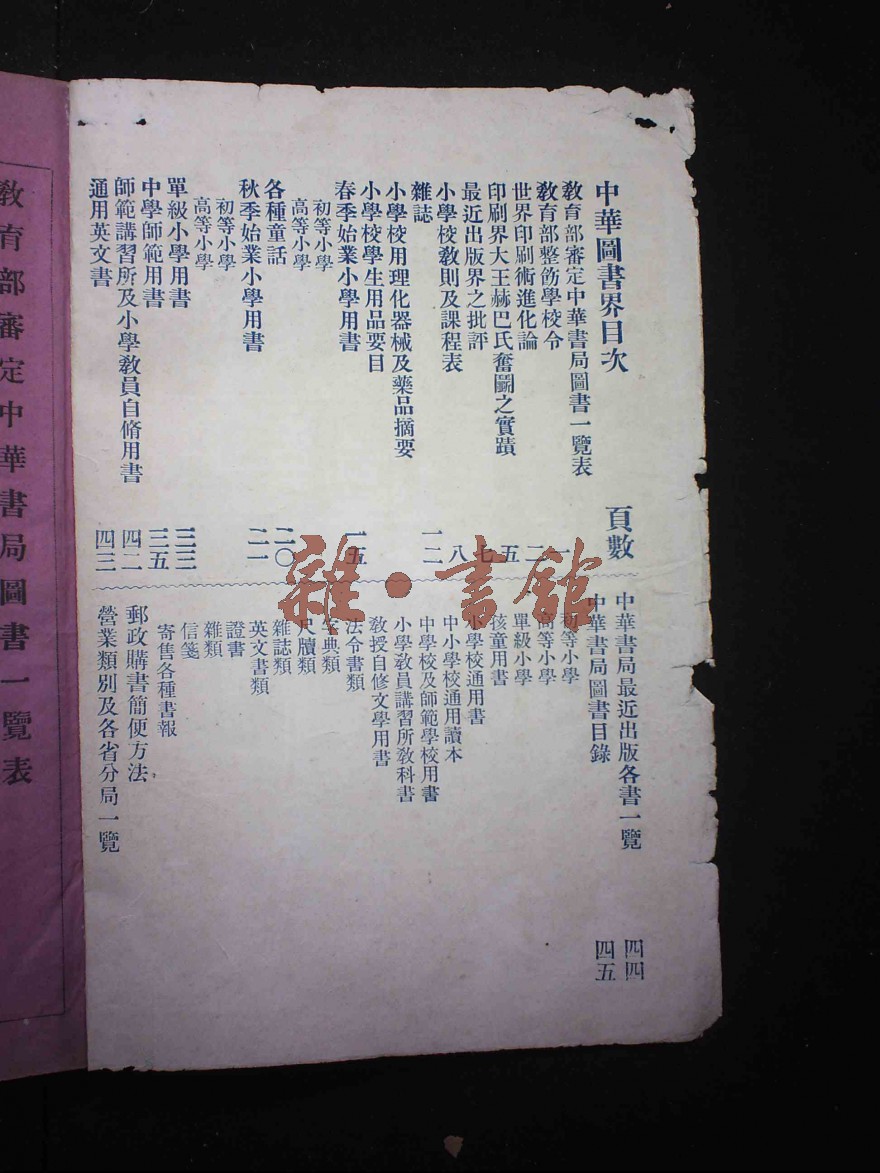 中華圖書界目次
頁數
教育部審定中華書局圖書一覽表
教育部整飭學校令
一
世界印刷術進化論
二
印刷界大王赫巴氏奮鬭之實蹟
五
最近出版界之批評
七
小學校教則及課程表
八
雜誌
一二
小學校用理化器械及藥品摘要
小學校學生用品要目
春季始業小學用書
一五
初等小學
高等小學
各種童話
二〇
秋季始業小學用書
二一
初等小學
高等小學
單級小學用書
三三
中學師範用書
三五
師範講習所及小學教員自脩用書
四二
通用英文書
四三
中華書局最近出版各書一覽
四四
中華書局圖書目錄
四五
初等小學
高等小學
單級小學
孩童用書
小學校通用書
中小學校通用讀本
中學校及師範學校用書
小學教員講習所教科書
教授自修文學用書
法令書類
字典類
尺牘類
雜誌類
英文書類
證書
雜類
信箋
寄售各種書報
郵政購書簡便方法
營業類別及各省分局一覽
教育部審定中華書局圖書一覽表
雜·書館